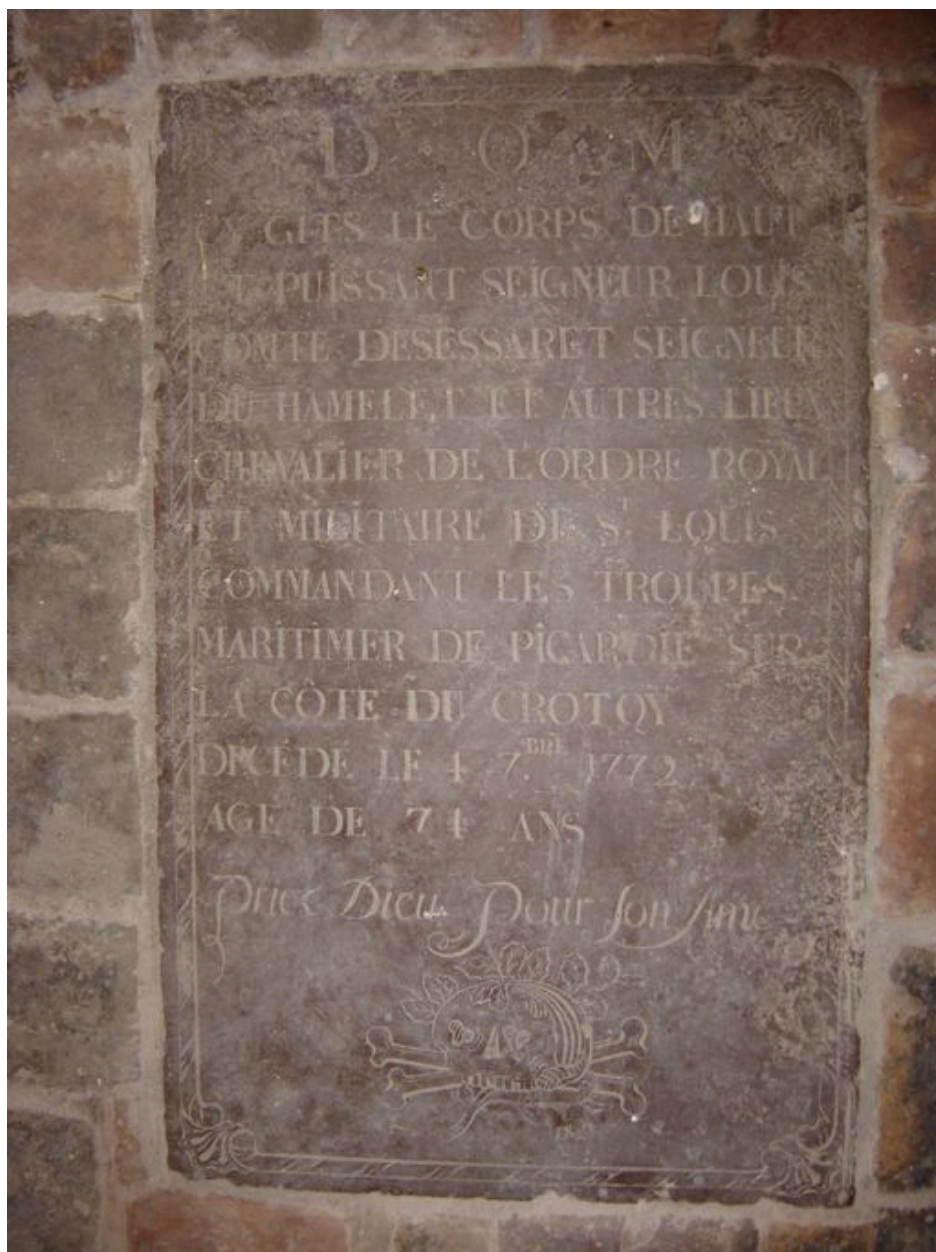 D O M
CY GITS LE CORPS DE HAUT
ET PUISSANT SEIGNEUR LOUIS
COMTE DESESSARET SEIGNEUR
DU HAMELET ET AUTRES LIEUX
CHEVALIER DE L'ORDRE ROYAL
ET MILITAIRE DE St LOUIS
COMMANDANT LES TROUPES
MARITIMER DE PICARDIE SUR
LA CÔTE DU CROTOY
DECEDE LE 4 7.BRE 1772
AGE DE 74 ANS
priez Dieu Pour son Ame